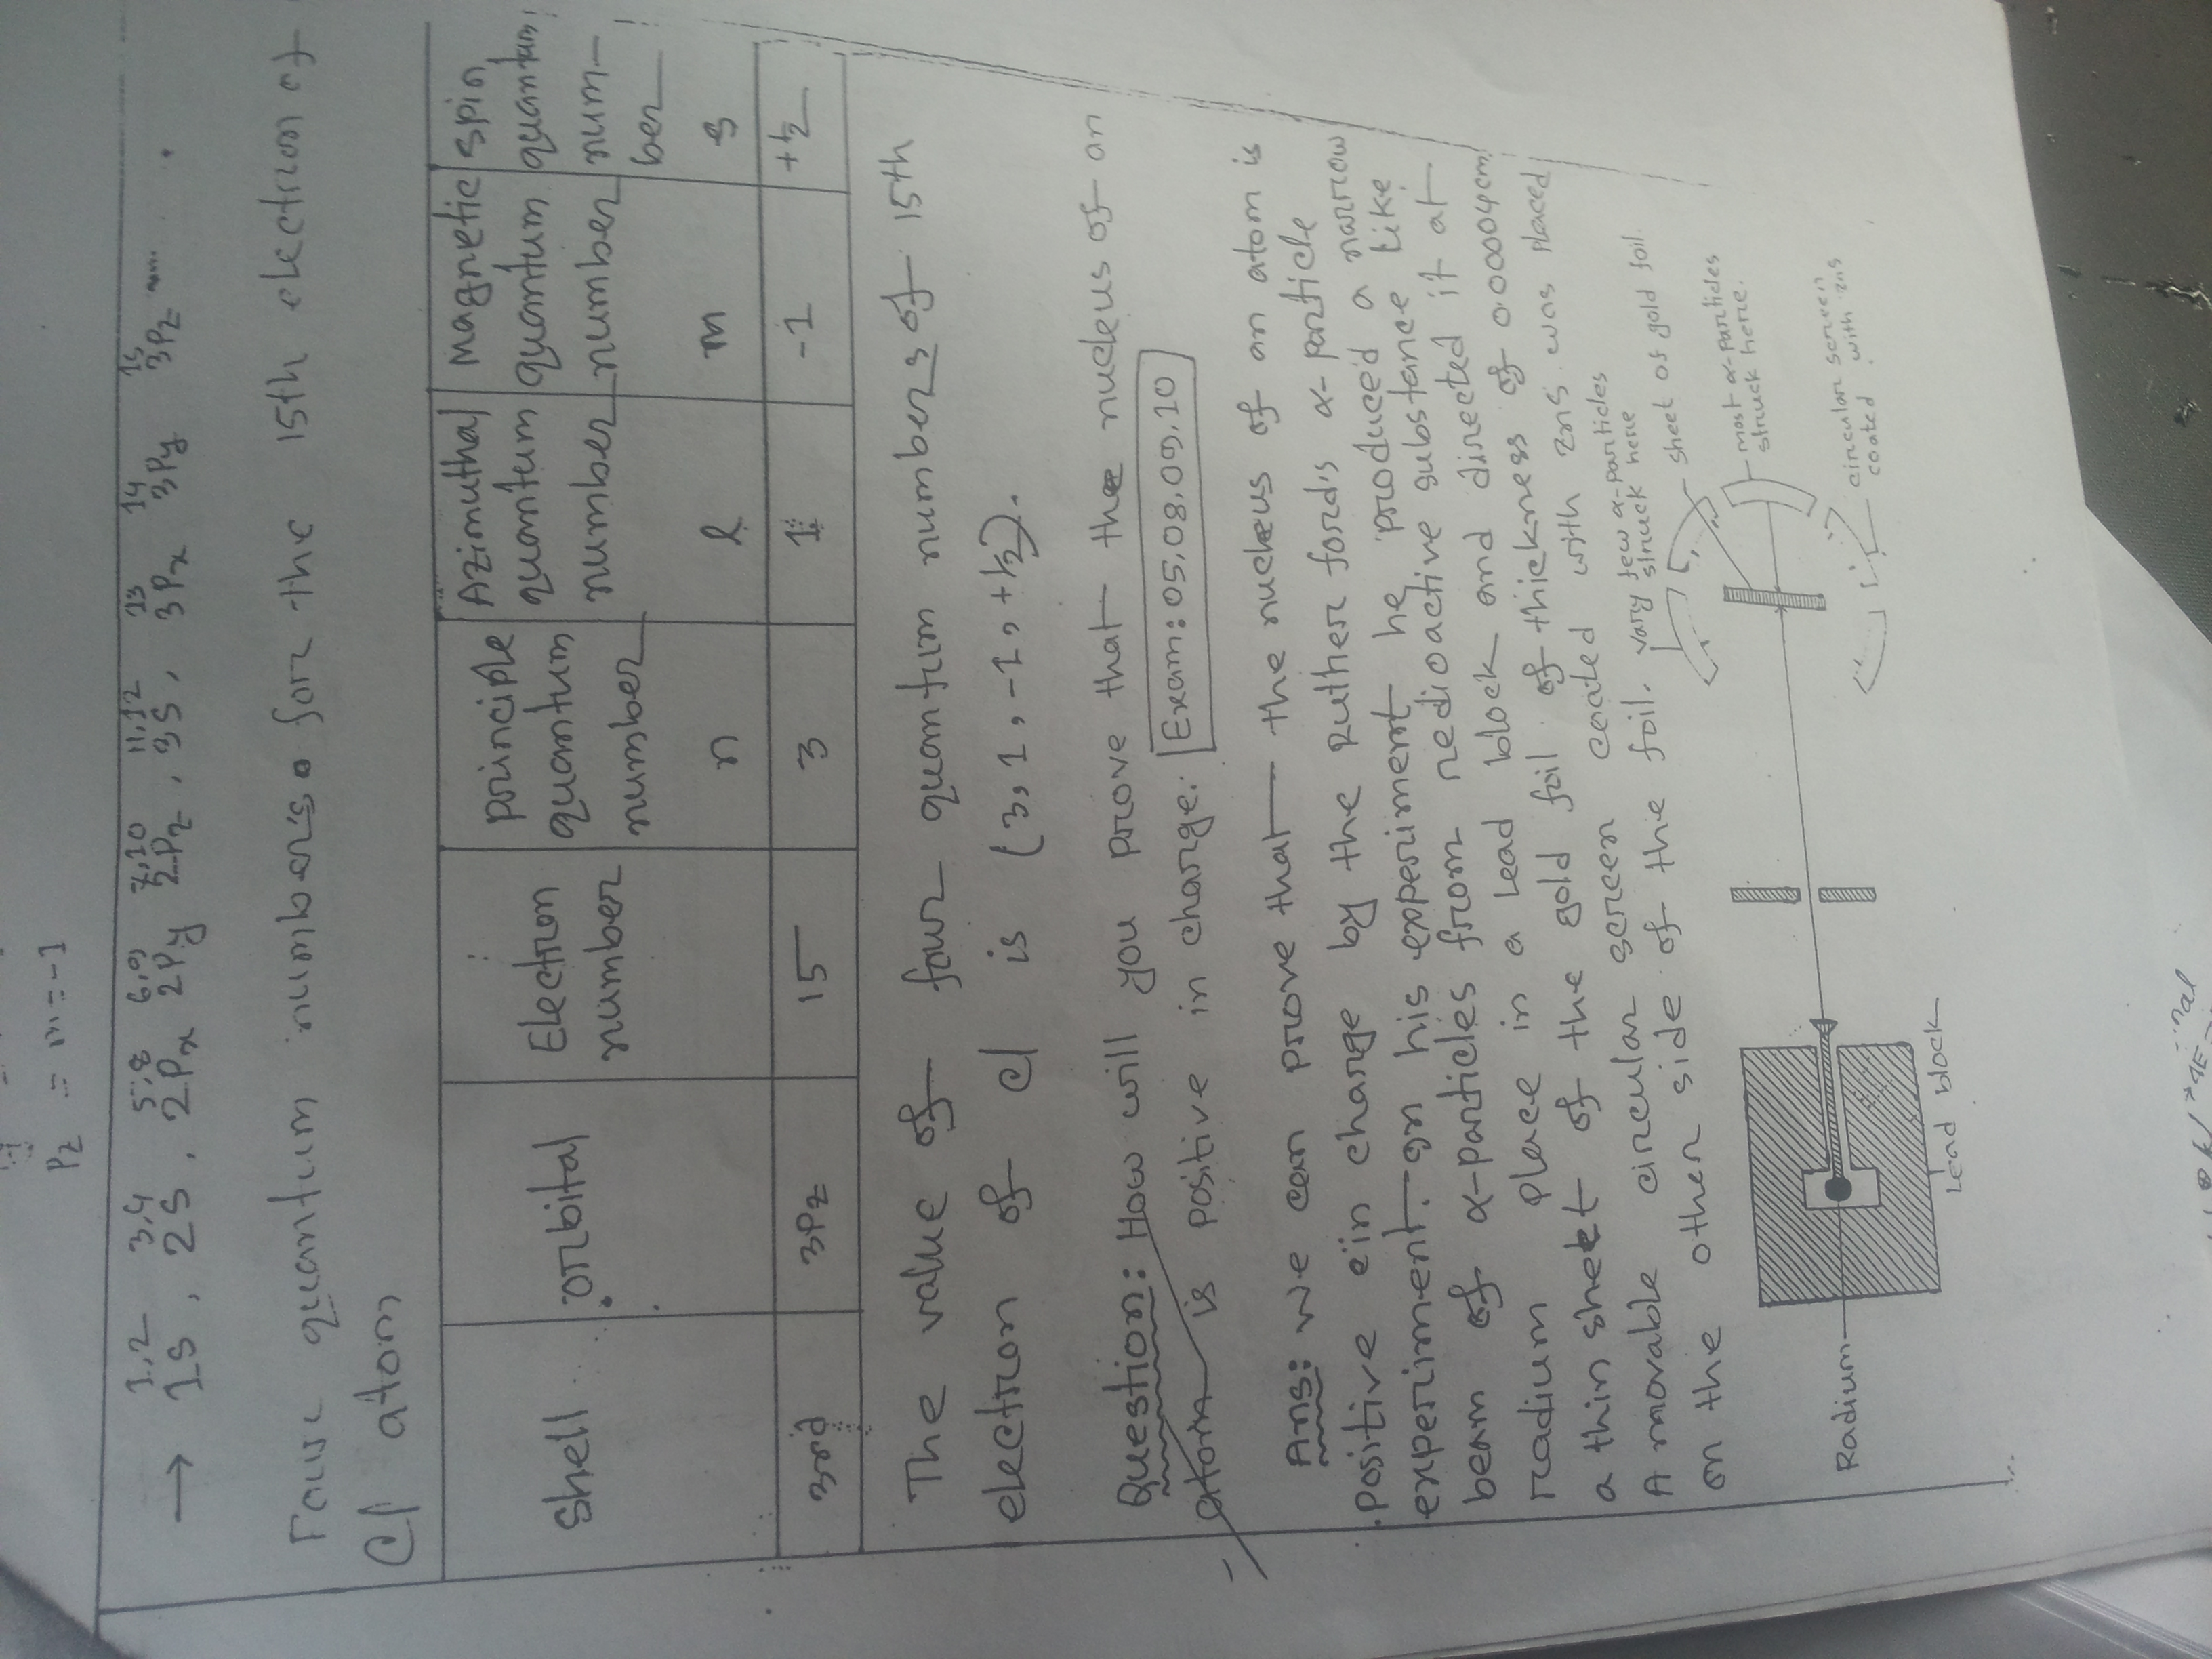 Pz = m = -1
1,2 3,4 5,8 6,9 7,10 11,12 13 14 15
→ 1S, 2S, 2Px 2Py 2Pz, 3S, 3Px 3Py 3Pz ....
Four quantum number's for the 15th electron of
Cl atom
Shell orbital Electron number principle quantum number n Azimuthal quantum number l Magnetic quantum number m spin quantum num-ber s
3rd 3Pz 15 3 1 -1 +½
The value of four quantum numbers of 15th
electron of cl is (3, 1, -1, +½).
Question: How will you prove that the nucleus of an
atom is positive in charge. Exam: 05,08,09,10
Ans: We can prove that the nucleus of an atom is
positive in charge by the Rutherford's α-particle
experiment. In his experiment he produced a narrow
beam of α-particles from redioactive substance like
radium place in a lead block and directed it at
a thin sheet of the gold foil of thickness of 0.00004cm
A movable circular screen coated with zns was placed
on the other side of the foil.
vary few α-particles
struck here
sheet of gold foil.
most α-particles
struck here.
Radium
circular screen
coated with zns
Lead block